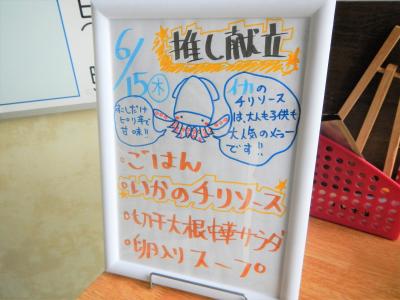 6/15(木)
推し献立
イカの
チリソース
は大人も子供も
大人気のメニュー
です!!
すこしだけ
ピリ辛で
甘味!!
・ごはん
・いかのチリソース
・切干大根中華サラダ
・卵入りスープ